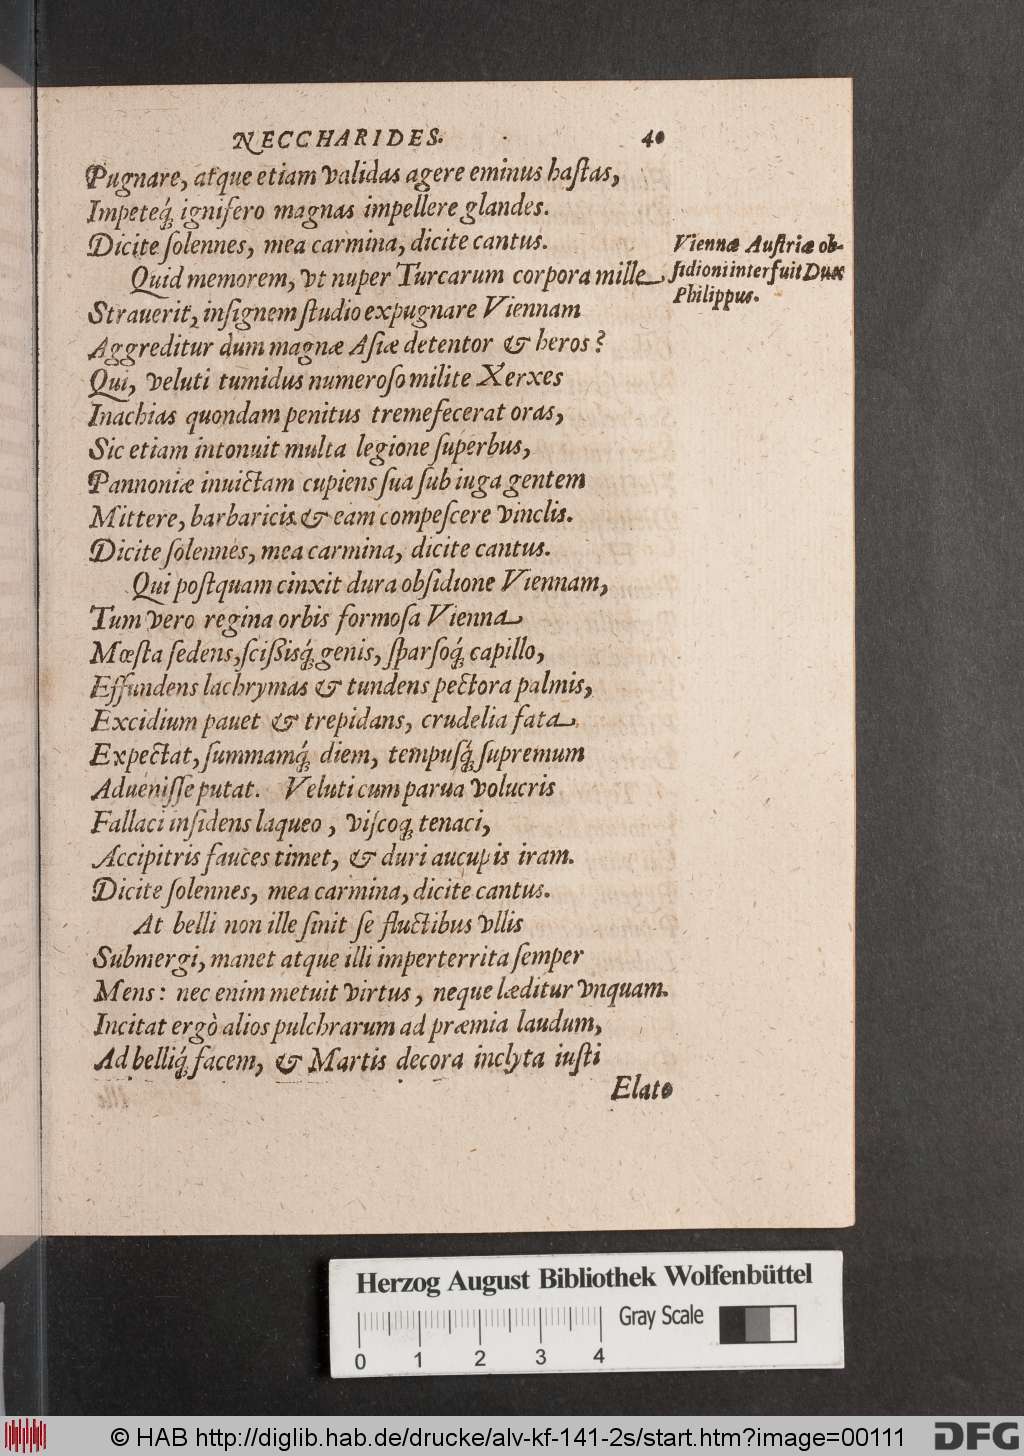 NECCHARIDES. 40
Pugnare, atque etiam validas agere eminus haſtas,
Impeteq́; ignifero magnas impellere glandes.
Dicite ſolennes, mea carmina, dicite cantus.
Viennæ Auſtriæ ob-
ſidioni interfuit Dux
Philippus.
Quid memorem, vt nuper Turcarum corpora mille
Strauerit, inſignem ſtudio expugnare Viennam
Aggreditur dum magnæ Aſiæ detentor & heros?
Qui, veluti tumidus numeroſo milite Xerxes
Inachias quondam penitus tremefecerat oras,
Sic etiam intonuit multa legione ſuperbus,
Pannoniæ inuictam cupiens ſua ſub iuga gentem
Mittere, barbaricis & eam compeſcere vinclis.
Dicite ſolennes, mea carmina, dicite cantus.
Qui poſtquam cinxit dura obſidione Viennam,
Tum vero regina orbis formoſa Vienna
Mœſta ſedens, ſcißisq́; genis, ſparſoq́; capillo,
Effundens lachrymas & tundens pectora palmis,
Excidium pauet & trepidans, crudelia fata
Expectat, ſummamq́; diem, tempuſq́; ſupremum
Adueniſſe putat. Veluti cum parua volucris
Fallaci inſidens laqueo, viſcoq; tenaci,
Accipitris fauces timet, & duri aucupis iram.
Dicite ſolennes, mea carmina, dicite cantus.
At belli non ille ſinit ſe fluctibus vllis
Submergi, manet atque illi imperterrita ſemper
Mens: nec enim metuit virtus, neque læditur vnquam.
Incitat ergò alios pulchrarum ad præmia laudum,
Ad belliq́; facem, & Martis decora inclyta iuſti
Elato
Herzog August Bibliothek Wolfenbüttel
Gray Scale
0 1 2 3 4
© HAB http://diglib.hab.de/drucke/alv-kf-141-2s/start.htm?image=00111
DFG